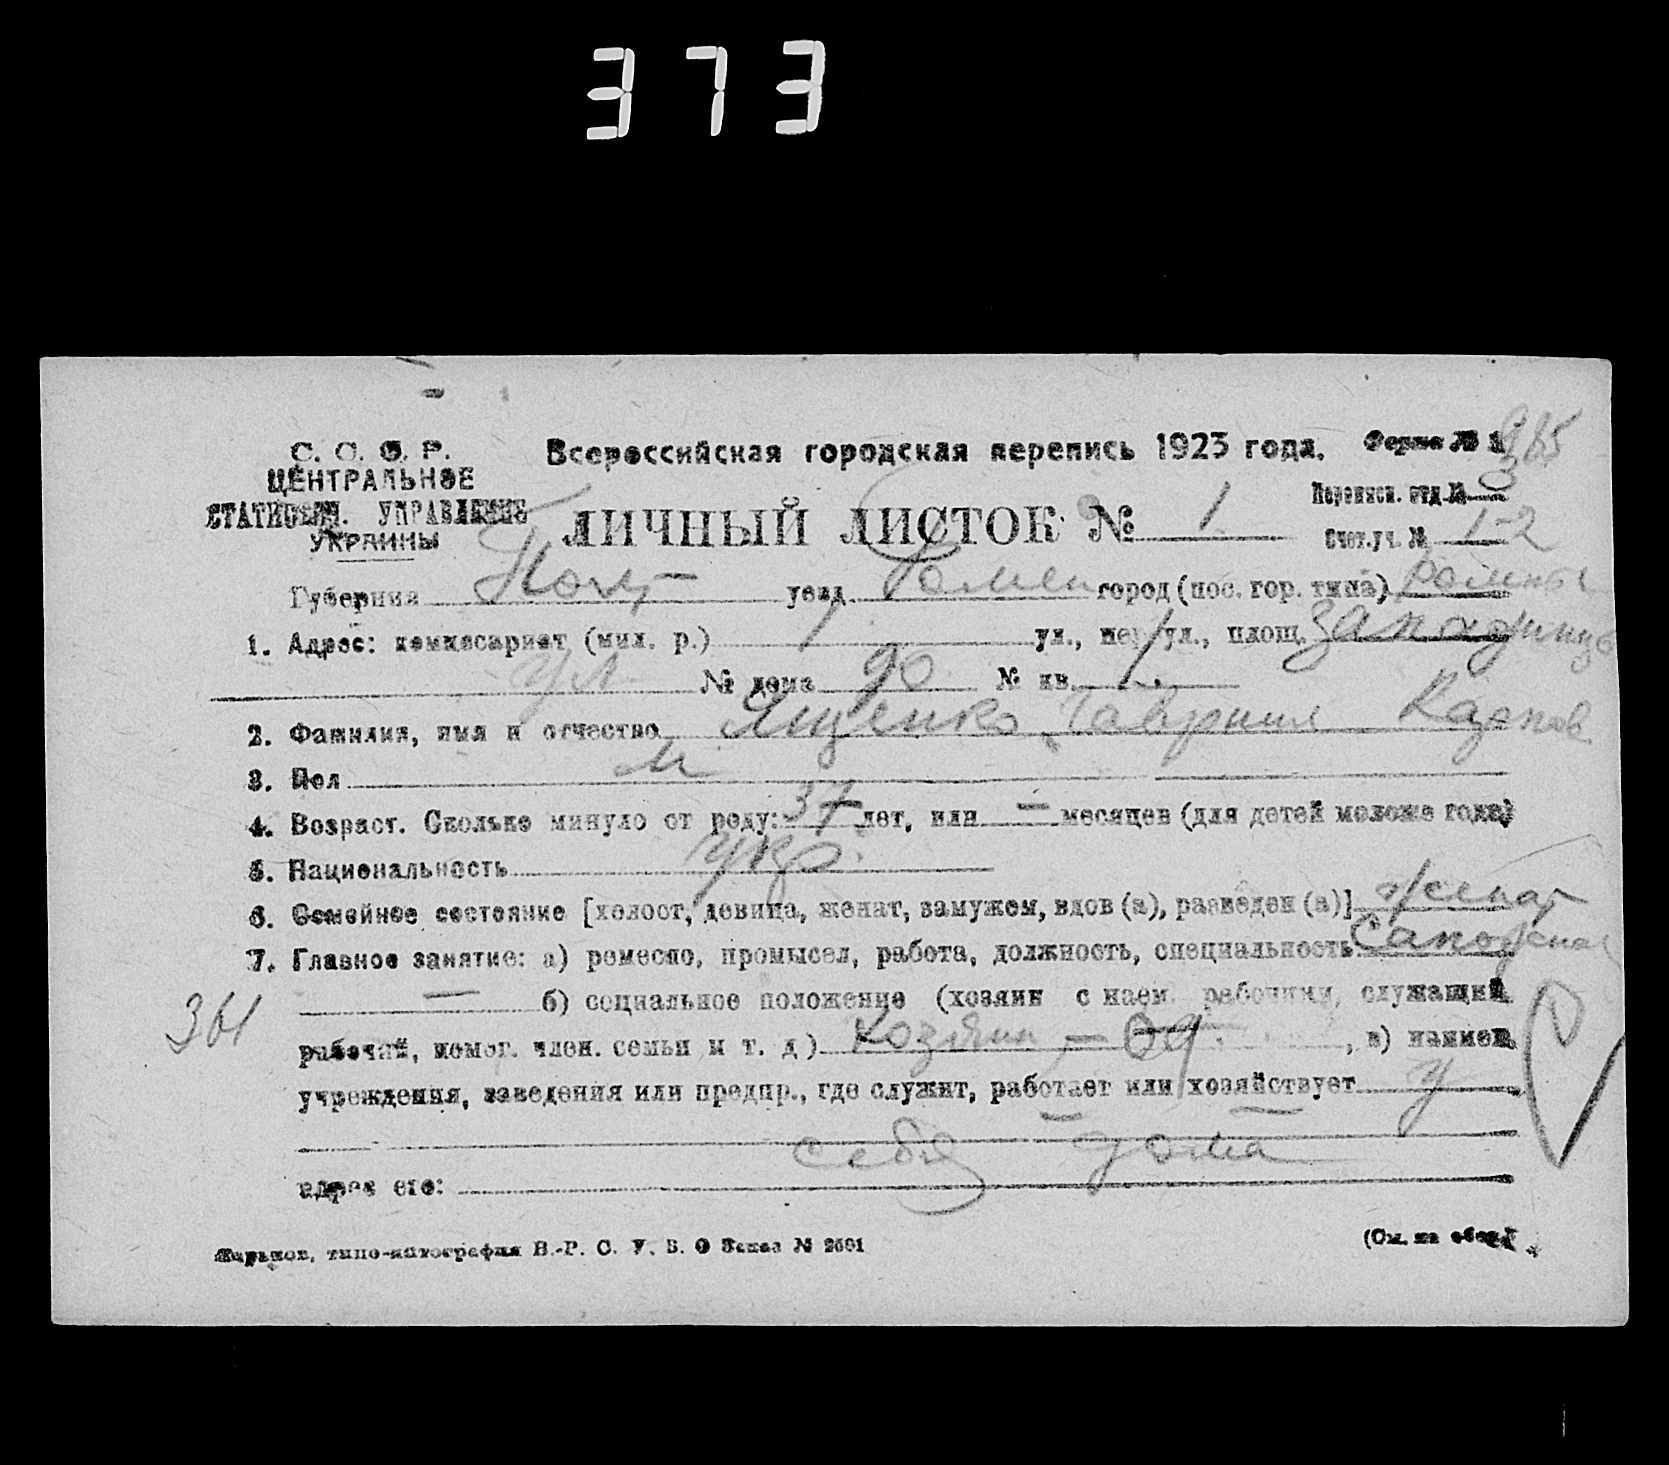 373
С. С. С. Р.
ЦЕНТРАЛЬНОЕ
СТАТИСТИЧ. УПРАВЛЕНИЕ
УКРАИНЫ
Всероссийская городская перепись 1923 года.
Форма № 1
ЛИЧНЫЙ ЛИСТОК № 1
Переписн. отд. № 3
Счет. уч. № 1-2
Губерния Полт уезд Ромен город (пос. гор. типа) Ромны
1. Адрес: комиссариат (мил. р.) 1 ул., пер., ул., площ.
ул. № дома 90 № кв. 1.
2. Фамилия, имя и отчество Ященко Гавриил Карпов
3. Пол М
4. Возраст. Сколько минуло от роду: 37 лет, или — месяцев (для детей моложе года)
5. Национальность укр.
6. Семейное состояние [холост, девица, женат, замужем, вдов (а), разведен (а)] женат
7. Главное занятие: а) ремесло, промысел, работа, должность, специальность
— б) социальное положение (хозяин с наем. рабочими, служащий
361
рабочий, помог. член. семьи и т. д) хозяин — од. , в) наимен.
учреждения, заведения или предпр., где служит, работает или хозяйствует у
себя дома
адрес его:
Харьков, типо-литография В.-Р. С. У. В. О Заказ № 2601
(См. на обор.)